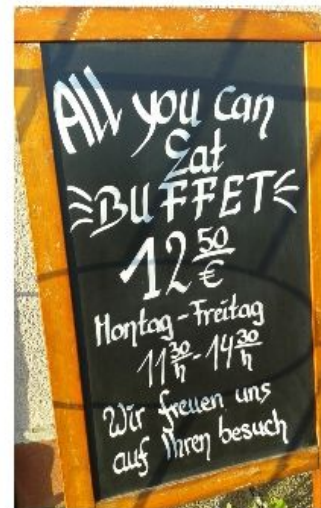 All you can
Eat
BUFFET
12 50 €
Montag - Freitag
11 30 h - 14 30 h
Wir freuen uns
auf Ihren besuch